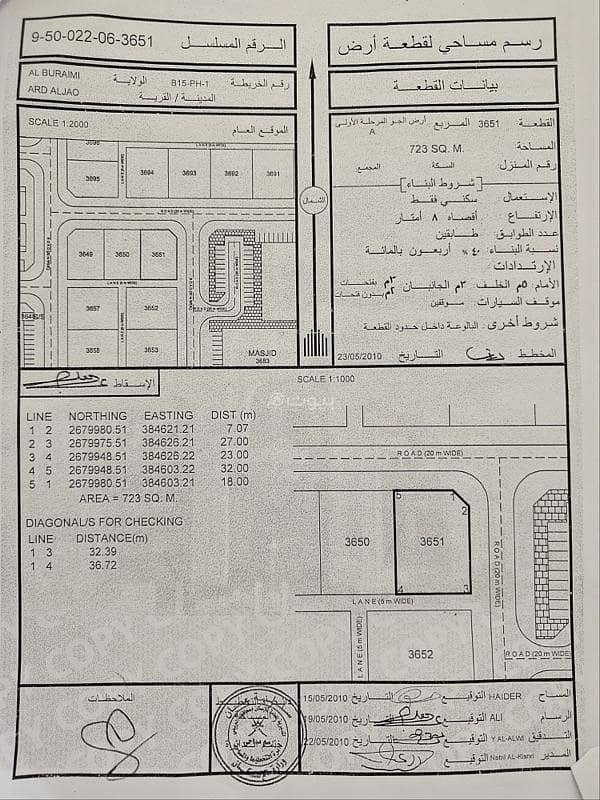 رسم مساحي لقطعة أرض
الرقم المسلسل 9-50-022-06-3651
بيانات القطعة
رقم الخريطة B15-PH-1 الولاية AL BURAIMI
المدينة / القرية ARD ALJAO
القطعة 3651 المربع أرض الجو المرحلة الأولى
A
المساحة 723 SQ. M.
رقم المنزل السكة المجمع
شروط البناء
الإستعمال سكني فقط
الإرتفاع أقصاه ٨ أمتار
عدد الطوابق طابقين
نسبة البناء ٤٠% أربعون بالمائة
الإرتدادات
الأمام ٥م الخلف ٣م الجانبان ٣م بفتحات
٢م بدون فتحات
موقف السيارات: موقفين
شروط أخرى: البالوعة داخل حدود القطعة
المخطط التاريخ 23/05/2010
SCALE 1:2000 الموقع العام
3696
3695
3694
3693
3692
3691
3649
3650
3651
3657
3652
3658
3653
MASJID
3683
الشمال
الإسقاط
LINE NORTHING EASTING DIST (m)
1 2 2679980.51 384621.21 7.07
2 3 2679975.51 384626.21 27.00
3 4 2679948.51 384626.22 23.00
4 5 2679948.51 384603.22 32.00
5 1 2679980.51 384603.21 18.00
AREA = 723 SQ. M.
DIAGONAL/S FOR CHECKING
LINE DISTANCE(m)
1 3 32.39
1 4 36.72
SCALE 1:1000
ROAD (20 m WIDE)
5 1
2
3650
3651
ROAD (20 m WIDE)
4 3
LANE (6 m WIDE)
LANE (6 m WIDE)
3652
ROAD (20 m WIDE)
الملاحظات
المساح HAIDER التوقيع التاريخ 15/05/2010
الرسام ALI التوقيع التاريخ 19/05/2010
التدقيق Y AL-ALWI التوقيع التاريخ 22/05/2010
المدير Nabil AL-Kishri التوقيع
بيوت